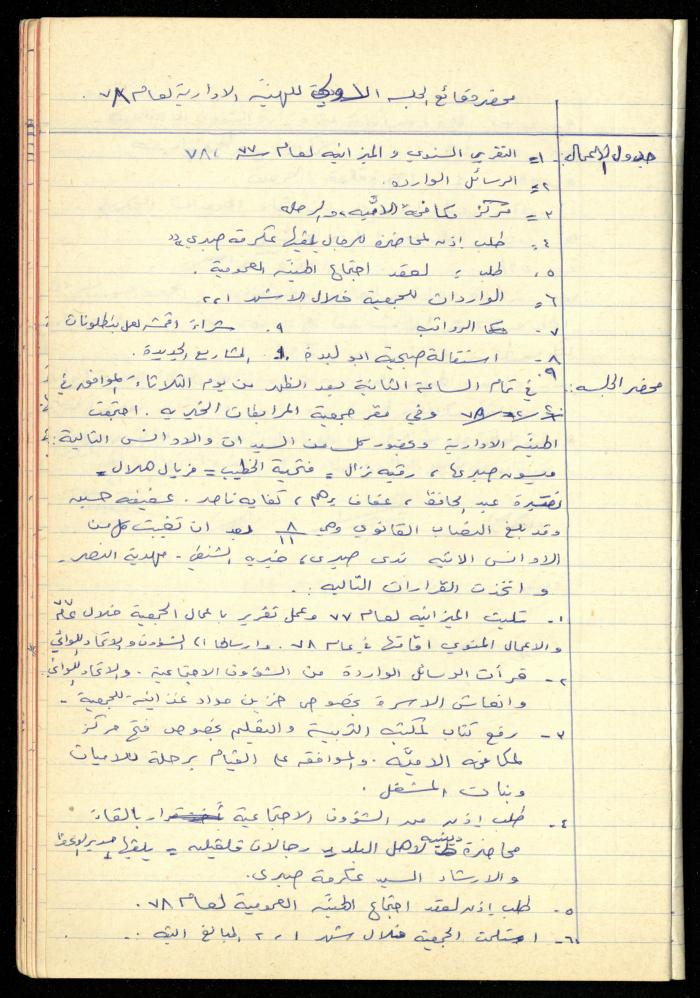 محضر وقائع الجلسه الاولى للهيئة الادارية لعام ٧٨.
جدول الاعمال:- ١- التقرير السنوي والميزانيه لعام ٧٧، ٧٨
٢- الرسائل الوارده.
٣- مركز مكافحة الاميّه، والرحله
٤- طلب اذن لمحاضرة للرجال يلقيها عكرمة صبري
٥- طلب لعقد اجتماع الهيئة العمومية.
٦- الواردات للجمعية خلال الاشهر ١، ٢
٧- الرواتب ٩. شراء اقمشه لعمل بنطلونات
٨- استقالة صبحية ابو لبدة ١٠. المشاريع الجديدة.
محضر الجلسه:- في تمام الساعة الثانية بعد الظهر من يوم الثلاثاء الموافق في
وفي مقر جمعية المرابطات الخيريه. اجتمعت
الهيئه الادارية وبحضور كل من السيدات والاوانس التالية:
ميسون صبري، رقيه نزال = فتحية الخطيب = فريال هلال =
عبد الحافظ، عفاف برهم، كفايه ناصر. عفيفه حسين
وقد بلغ النصاب القانوني وهي ٨/١١ بعد ان تغيبت كل من
الاوانس الاتيه ندى صبري، خيريه الشنطي - مهدية النصر -
واتخذت القرارات التاليه:.
١- تليت الميزانيه لعام ٧٧ وعمل تقرير باعمال الجمعية خلال عام
والاعمال المنوي اقامتها في عام ٧٨. وارسالها الى الشؤون والاتحاد اللوائي
٢- قرأت الرسائل الواردة من الشؤون الاجتماعية. والاتحاد اللوائي
وانعاش الاسرة بخصوص خزين مواد غذائية للجمعية -
٣- رفع كتاب لمكتب التربية والتعليم بخصوص فتح مركز
لمكافحة الاميّه. والموافقه على القيام برحلة للاميات
وبنات المشغل.
٤- طلب اذن من الشؤون الاجتماعية بالقاء
محاضرة دينيه لاهل البلد رجالات قلقيليه = يلقيها مدير الوعظ
والارشاد السيد عكرمة صبري.
٥- طلب اذن لعقد اجتماع الهيئه العمومية لعام ٧٨.
٦- استلمت الجمعية خلال شهر ١، ٢ المبالغ الاتية:.